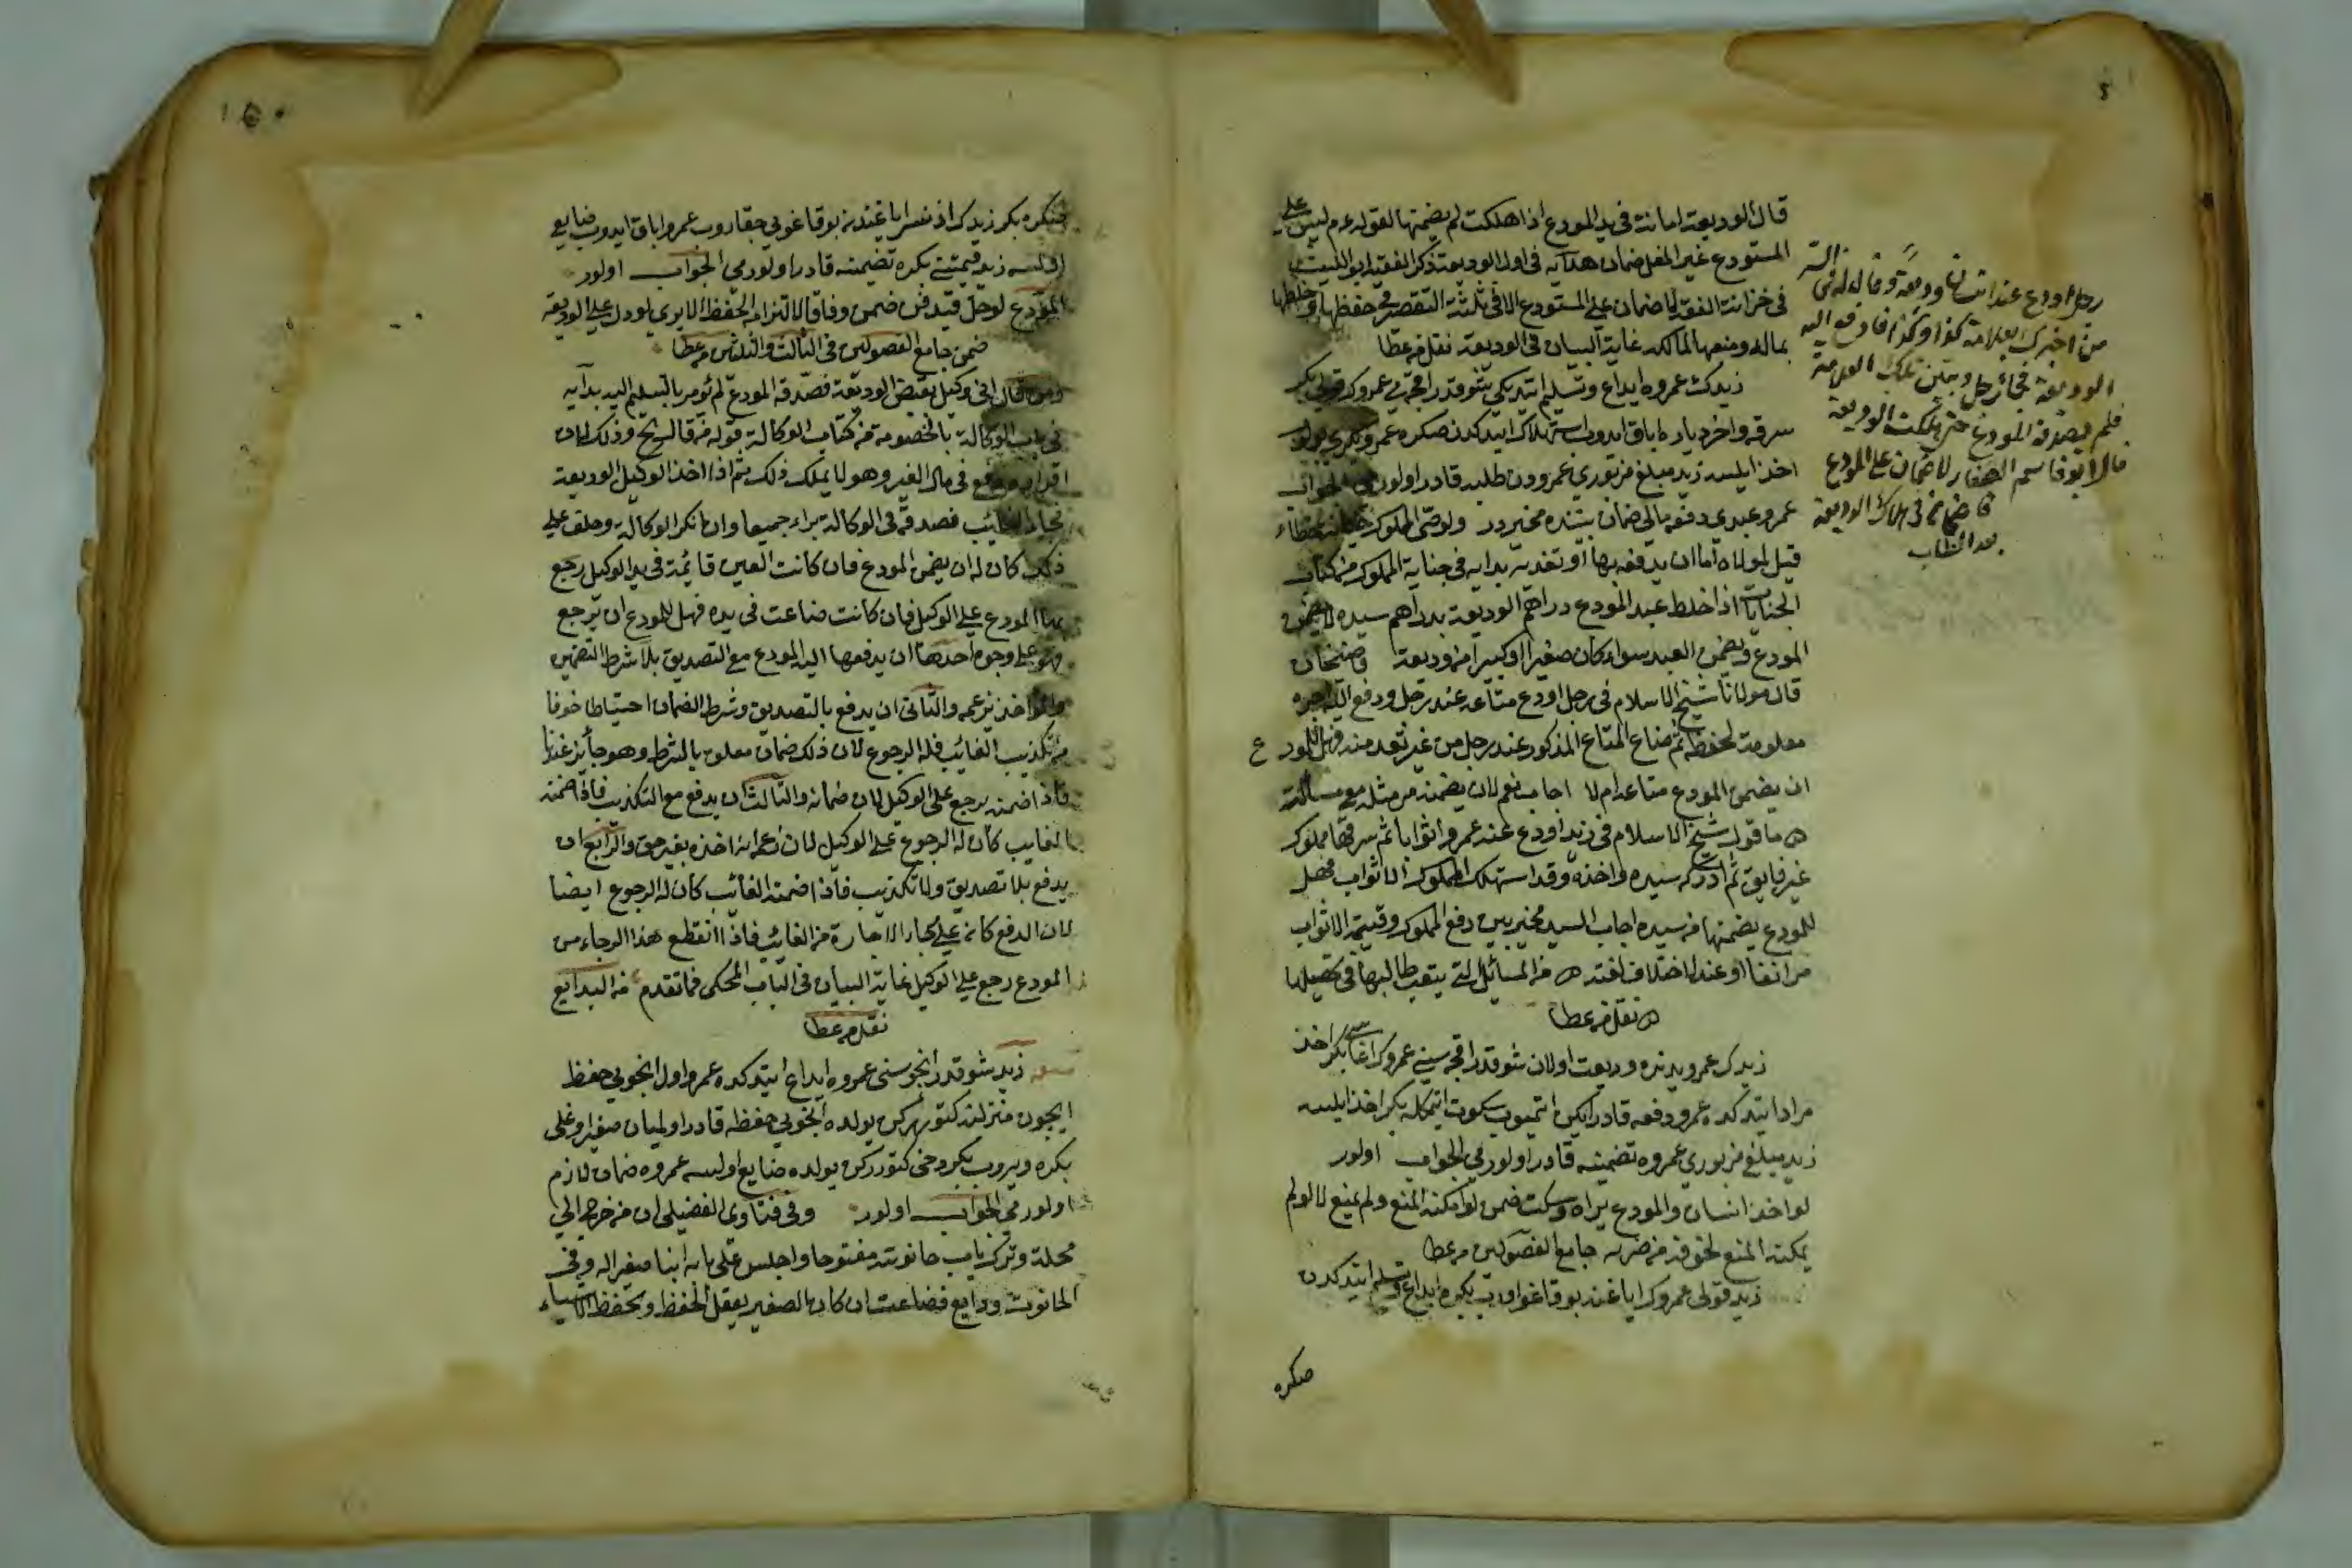 قال الوديعة امانة فى يد المودع اذا هلكت لم يضمنها لقوله عم ليس على
المستودع غير المغل ضمان هدايه فى اول الوديعة ذكر الفقيه ابو الليث
فى خزانة الفقه لا ضمان على المستودع الا فى ثلثة التقصير فى حفظها وخلطها
بماله ومنعها لمالكه غاية البيان فى الوديعة نقل مر عطا
زيدك عمروه ايداع وتسليم ايتديكى شوقدر اقچه يى عمروك قولى بكر
سرقه واخر دياره اباق ايدوب استهلاك ايتدكدن صكره عمرو بكرى بولوب
اخذ ايلسه زيد مبلغ مزبورى عمرودن طلبه قادر اولورمى الجواب
عمرو عبدى دفعه يا لى ضمان بيننده مخيردر ولو جنى المملوك جناية خطاء
قيل لمولاه اما ان يدفعه بها او تفديه هدايه فى جناية المملوك من كتاب
الجنايات اذا خلط عبد المودع دراهم الوديعة بدراهم سيده لا يضمن
المودع ويضمن العبد سواء كان صغيرا او كبيرا من وديعة قاضيخان
قال مولانا شيخ الاسلام فى رجل اودع متاعه عند رجل ودفع اليه اجره
معلومة لحفظه ثم ضاع المتاع المذكور عند رجل من غير تعد منه فهل للمودع
ان يضمن المودع متاعه ام لا اجاب نعم لان يضمنه من مثله مع مسألته
ما قول شيخ الاسلام فى زيد اودع عند عمرو اثوابا ثم سرقها مملوك
غير فايق ثم ادركه سيره واخذه وقد استهلك المملوك الاثواب فهل
للمودع يضمنها من سيده اجاب السيد مخير بين دفع المملوك وقيمة الاثواب
مر انفا او عند الاختلاف افتد من المسائل التى يتعب طالبها فى تحصيلها
نقل مر عطا
زيدك عمرو يدنده وديعت اولان شوقدر اقچه سينى عمروك اغاسى بكر اخذ
مراد ايتدكده عمرو دفعه قادر ايكن ايتميوب سكوت ايتمكله بكر اخذ ايلسه
زيد مبلغ مزبورى عمروه تضمينه قادر اولورمى الجواب اولور
لو اخذ انسان والمودع يراه وسكت ضمن لو امكنه المنع ولم يمنع لا لو لم
يمكنه المنع لخوفه من ضربه جامع الفصولين مر عطا
زيد قولى عمروك اباغنه بوقاغو اوروب بكره ايداع وتسليم ايتدكدن
صكره
رجل اودع عند انسان وديعة وقال له فى السر
من اخبرك بعلامة كذا وكذا فادفع اليه
الوديعة فجاء رجل وبين تلك العلامة
فلم يصدقه المودع حتى هلكت الوديعة
قال ابو قاسم الصفار لا ضمان على المودع
قاضيخان فى هلاك الوديعة
بعد الطلب
١٥٠
صكره بكر زيدك اذنسز اياغندن بوقاغويى چقاروب عمرو اباق ايدوب ضايع
اولسه زيد قيمتنى بكره تضمينه قادر اولورمى الجواب اولور
المودع لو حل قيد قن ضمن وفاقا لالتزامه الحفظ الا يرى لو دل على الوديعة
ضمن جامع الفصولين فى الثالث والثلاثين مر عطا
ومن قال انى وكيل بقبض الوديعة فصدقه المودع لم يؤمر بالتسليم اليه بدايه
فى باب الوكالة بالخصومة من كتاب الوكالة قوله من قال الخ وذلك لان
اقراره مدفع فى مال الغير وهو لا يملك ذلك ثم اذا اخذ الوكيل الوديعة
فجاء الغائب فصدقه فى الوكالة براء جميعا وان انكر الوكالة وحلف على
ذلك كان له ان يضمن المودع فان كانت العين قايمة فى يد الوكيل رجع
بها المودع على الوكيل فان كانت ضاعت فى يده فهل للمودع ان يرجع
فهو على وجوه احدها ان يدفعها اليه المودع مع التصديق بلا شرط التضمين
والثانى ان يدفع بالتصديق وشرط الضمان احتياطا خوفا
من تكذيب الغائب فله الرجوع لان ذلك ضمان معلوم بالشرط وهو جائز عندنا
فاذا ضمنه يرجع على الوكيل لان ضمانه والثالث ان يدفع مع التكذيب فاذا ضمنه
الغايب كان له الرجوع على الوكيل لان زعمه انه اخذه بغير حق والرابع ان
يدفع بلا تصديق ولا تكذيب فاذا ضمنه الغائب كان له الرجوع ايضا
لان الدفع كان على رجاء الاجازة من الغائب فاذا انقطع هذا الرجاء من
المودع رجع على الوكيل غاية البيان فى الباب المحكى فما تقدم من البدايع
نقل مر عطا
زيد شوقدر انجوسنى عمروه ايداع ايتدكده عمرو اول انجويى حفظ
ايچون منزلنه كتورركن يولده انجويى حفظه قادر اولميان صغير اوغلى
بكره ويروب بكر دخى كتورركن يولده ضايع اولسه عمروه ضمان لازم
اولورمى الجواب اولور وفى فتاوى الفضيلى ان من خرج الى
محلة وترك باب حانوته مفتوحا واجلس على بابه ابنا صغيرا له وفى
الحانوت ودايع فضاعت ان كان الصغير يعقل الحفظ ويحفظ الاشياء